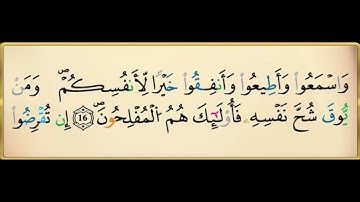 وَاسْمَعُوا۟ وَأَطِيعُوا۟ وَأَنفِقُوا۟ خَيْرًا لِّأَنفُسِكُمْ ۗ وَمَن
يُوقَ شُحَّ نَفْسِهِۦ فَأُو۟لَٰٓئِكَ هُمُ الْمُفْلِحُونَ ۝١٦ إِن تُقْرِضُوا۟